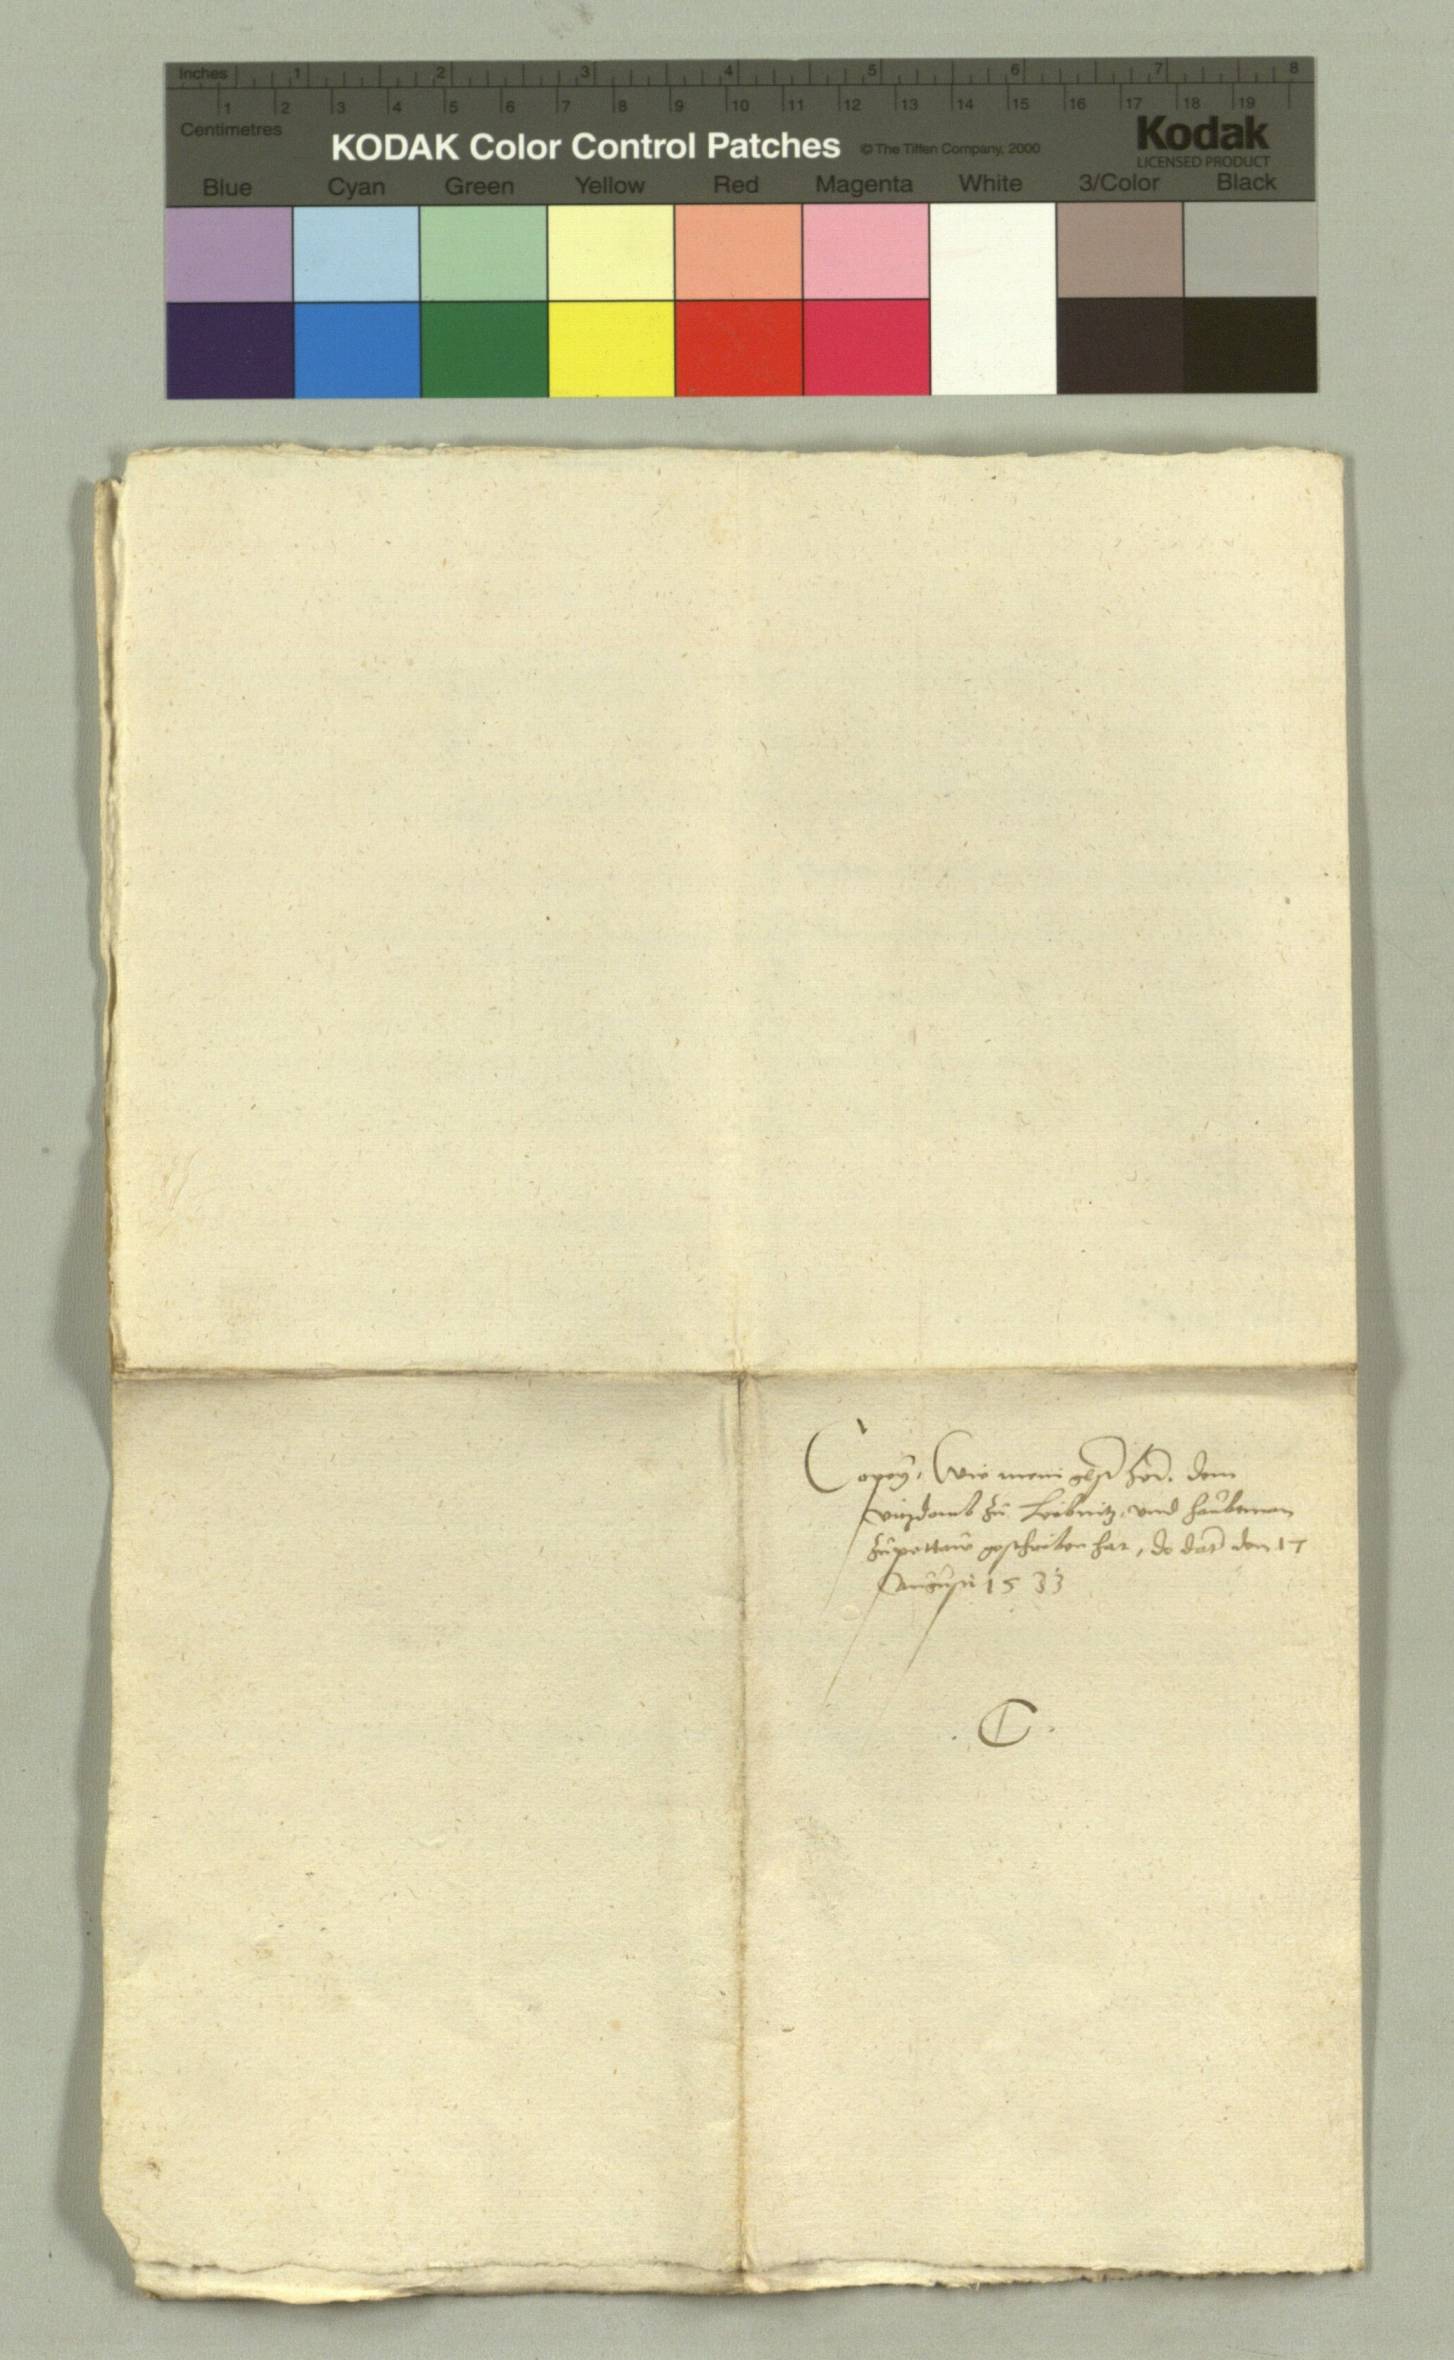 Inches 1 2 3 4 5 6 7 8
1 2 3 4 5 6 7 8 9 10 11 12 13 14 15 16 17 18 19
Centimetres
KODAK Color Control Patches © The Tiffen Company, 2000 Kodak
LICENSED PRODUCT
Blue Cyan Green Yellow Red Magenta White 3/Color Black
Copey, Wie mein dem
vizdomb zu Leibnitz, vnd haubtman
zu pettaw geschriben hat, de dat den 17
Augusti 1533
. C .